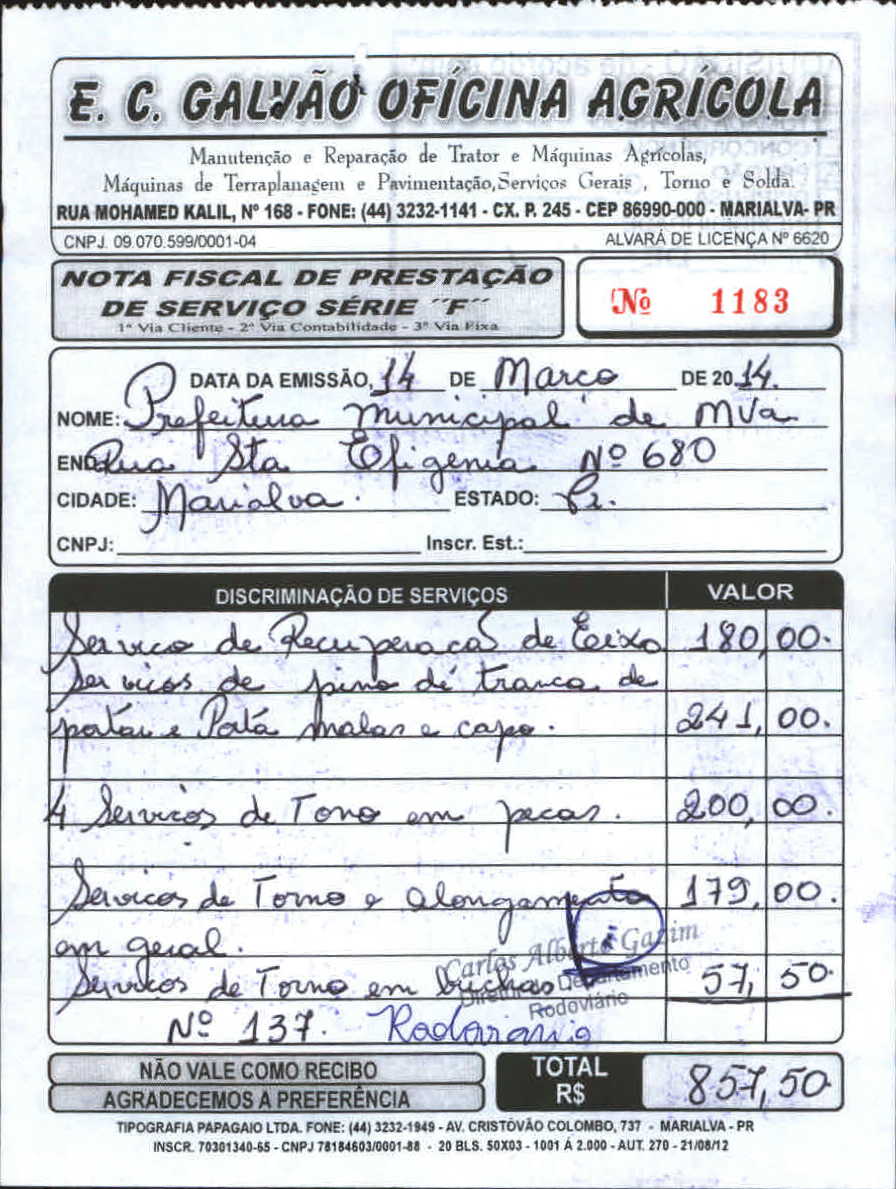 E. C. GALVÃO OFÍCINA AGRICOLA
Manutenção e Reparação de Trator e Máquinas Agrícolas,
Máquinas de Terraplanagem e Pavimentação, Serviços Gerais , Torno e Solda.
RUA MOHAMED KALIL, Nº 168 - FONE: (44) 3232-1141 - CX. P. 245 - CEP 86990-000 - MARIALVA- PR
CNPJ. 09.070.599/0001-04 ALVARÁ DE LICENÇA Nº 6620
NOTA FISCAL DE PRESTAÇÃO
DE SERVIÇO SÉRIE "F"
Nº 1183
1ª Via Cliente - 2ª Via Contabilidade - 3ª Via Fixa
DATA DA EMISSÃO, 14 DE Marco DE 20 14.
NOME: Prefeitura municipal de mva
END. Rua Sta Efigenia Nº 680
CIDADE: Marialva. ESTADO: Pr.
CNPJ: Inscr. Est.:
DISCRIMINAÇÃO DE SERVIÇOS VALOR
Servico de Recuperacaõ de Eeixo 180,00.
Servicos de pino de tranca de
portas e Porta malas e capo. 241,00.
4 Servicos de Tono em pecas. 200,00.
Servicos de Torno e alongamento 179,00.
em geral.
Carlos Alberto Gazim
Diretor Departamento
Rodoviário
Servicos de Torno em buchas 57,50.
Nº 137. Rodoviario
NÃO VALE COMO RECIBO
AGRADECEMOS A PREFERÊNCIA
TOTAL
R$ 857,50
TIPOGRAFIA PAPAGAIO LTDA. FONE: (44) 3232-1949 - AV. CRISTÓVÃO COLOMBO, 737 - MARIALVA - PR
INSCR. 70301340-65 - CNPJ 78184603/0001-88 - 20 BLS. 50X03 - 1001 Á 2.000 - AUT. 270 - 21/08/12